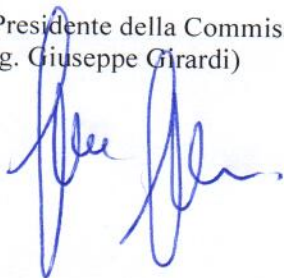 Presidente della Commis
g. Giuseppe Girardi)